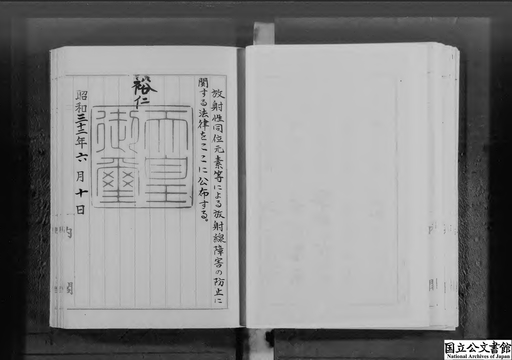 放射性同位元素等による放射線障害の防止に
関する法律をここに公布する。
裕仁
天皇
御璽
昭和三十二年六月十日
内閣
国立公文書館
National Archives of Japan